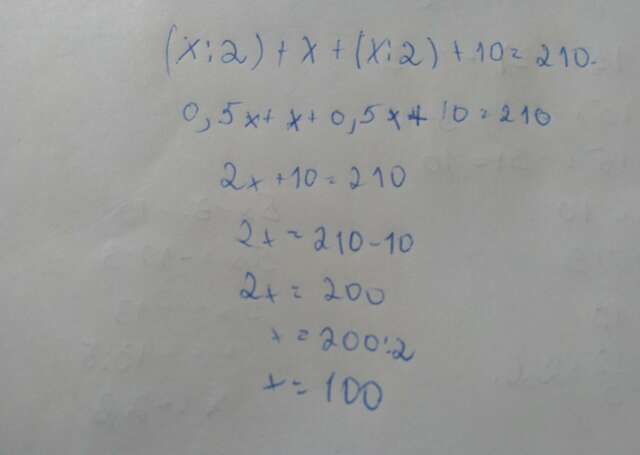 (x:2)+x+(x:2)+10=210.
0,5x+x+0,5x+10=210
2x+10=210
2x=210-10
2x=200
x=200:2
x=100